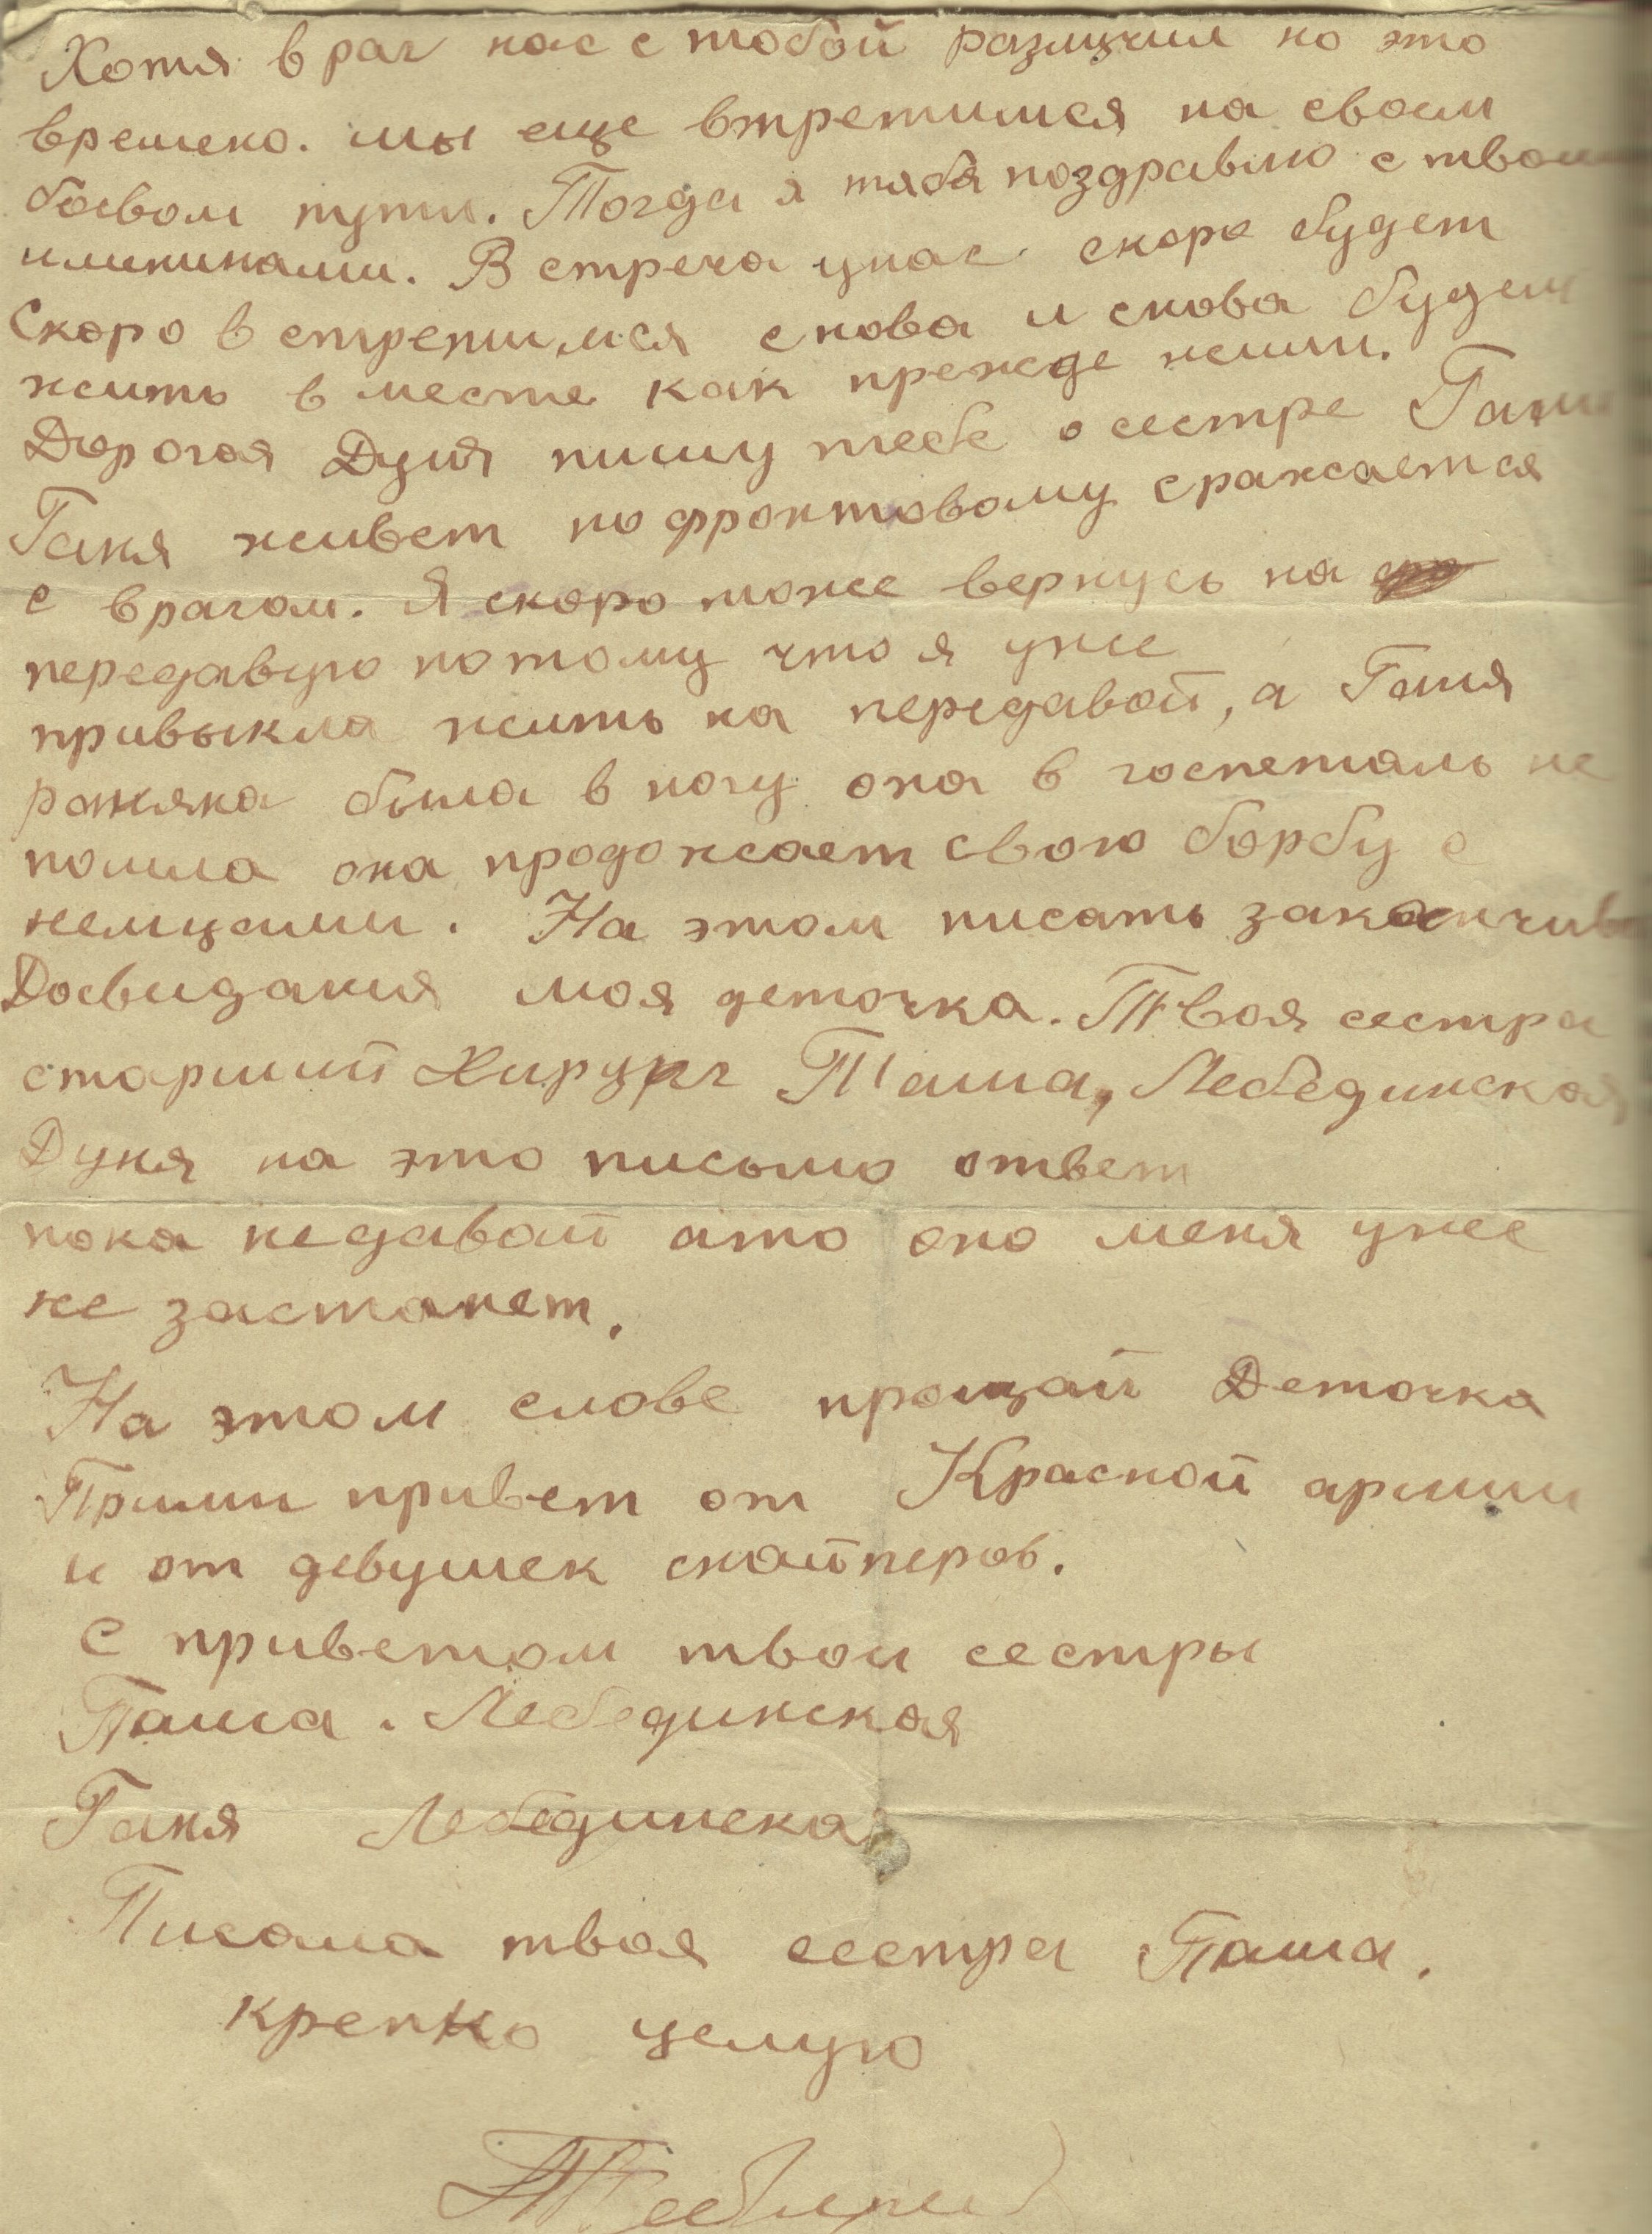 Хотя враг нас с тобой разлучил но это
времено. мы еще встретимся на своем
боевом пути. Тогда я тябя поздравлю с твоими
имининами. Встреча унас скоро будет
Скоро встретимся снова и снова будем
жить вместе как прежде жили.
Дорогая Дуня пишу тебе о сестре Гани
Ганя живет пофронтовому сражается
с врагом. Я скоро тоже вернусь на
передавую потому что я уже
привыкла жить на передавой, а Ганя
раняна была в ногу она в госпеталь не
пошла она продожает свою борбу с
немцами. На этом писать заканчиваю
Досвидания моя деточка. Твоя сестра
старший Хирург Паша, Лебединская
Дуня на это письмо ответ
пока недавай ато оно меня уже
не застанет.
На этом слове прощай Деточка
Прими привет от Красной армии
и от девушек снайперов.
С приветом твои сестры
Паша. Лебединская
Ганя Лебединская
Писала твоя сестра Паша.
крепко целую